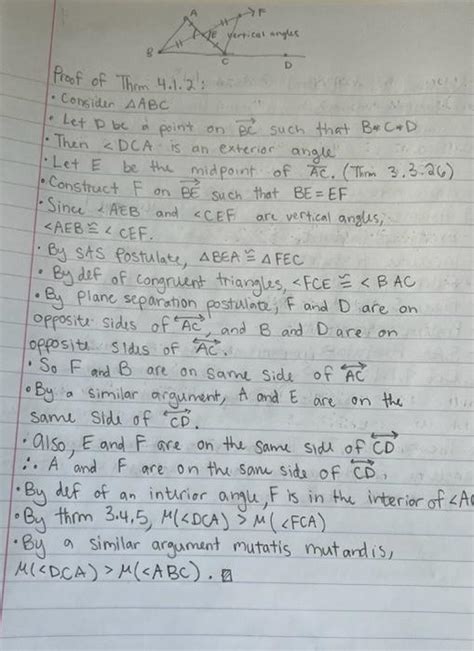 A
F
E
vertical angles
B
C
D
Proof of Thrm 4.1.2:
• Consider △ABC
• Let D be a point on →BC such that B*C*D
• Then ∠DCA is an exterior angle
• Let E be the midpoint of AC. (Thm 3.3.26)
• Construct F on →BE such that BE = EF
• Since ∠AEB and ∠CEF are vertical angles,
∠AEB ≅ ∠CEF.
• By SAS Postulate, △BEA ≅ △FEC
• By def of congruent triangles, ∠FCE ≅ ∠BAC
• By plane separation postulate, F and D are on
opposite sides of ↔AC, and B and D are on
opposite sides of ↔AC.
• So F and B are on same side of ↔AC
• By a similar argument, A and E are on the
same side of ↔CD.
• Also, E and F are on the same side of ↔CD
∴ A and F are on the same side of ↔CD.
• By def of an interior angle, F is in the interior of ∠A
• By thrm 3.4.5, M(∠DCA) > M(∠FCA)
• By a similar argument mutatis mutandis,
M(∠DCA) > M(∠ABC).